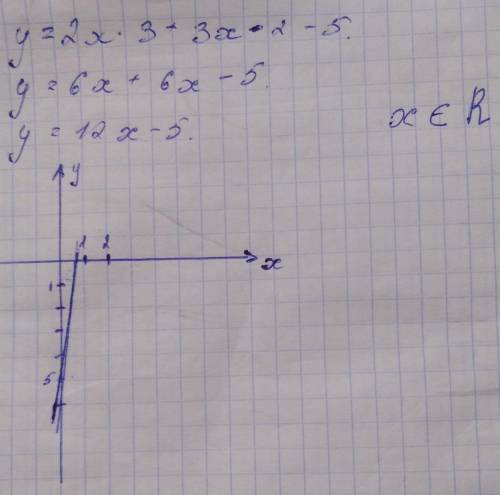 y = 2x · 3 + 3x · 2 - 5.
y = 6x + 6x - 5.
y = 12x - 5.
x ∈ R
y
1 2
x
1
5